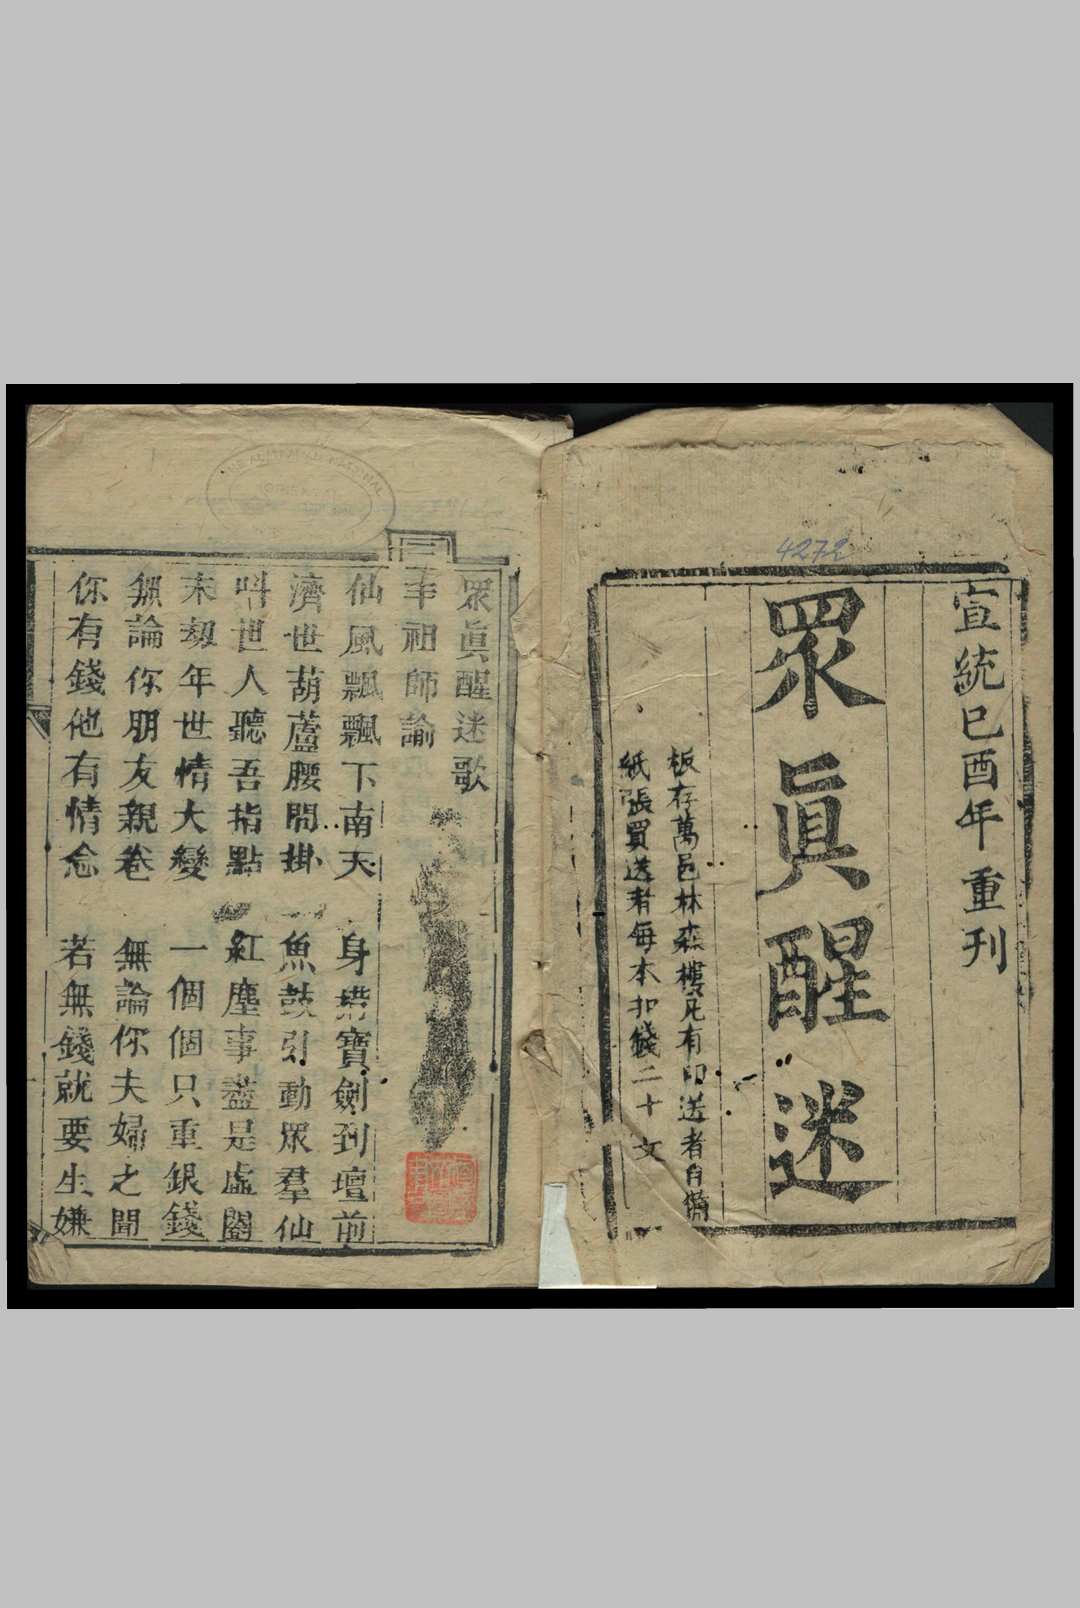 宣統己酉年重刊
眾眞醒迷
板存萬邑林森樓凡有印送者自備
紙張買送者每本扣錢二十文
4272
眾眞醒迷歌
祖師諭
仙風飄飄下南天 身揹寶劍到壇前
濟世葫蘆腰間掛 魚鼓引動眾羣仙
叫世人聽吾指點 紅塵事盡是虛閣
末刼年世情大變 一個個只重銀錢
無論你朋友親眷 無論你夫婦之間
你有錢他有情念 若無錢就要生嫌